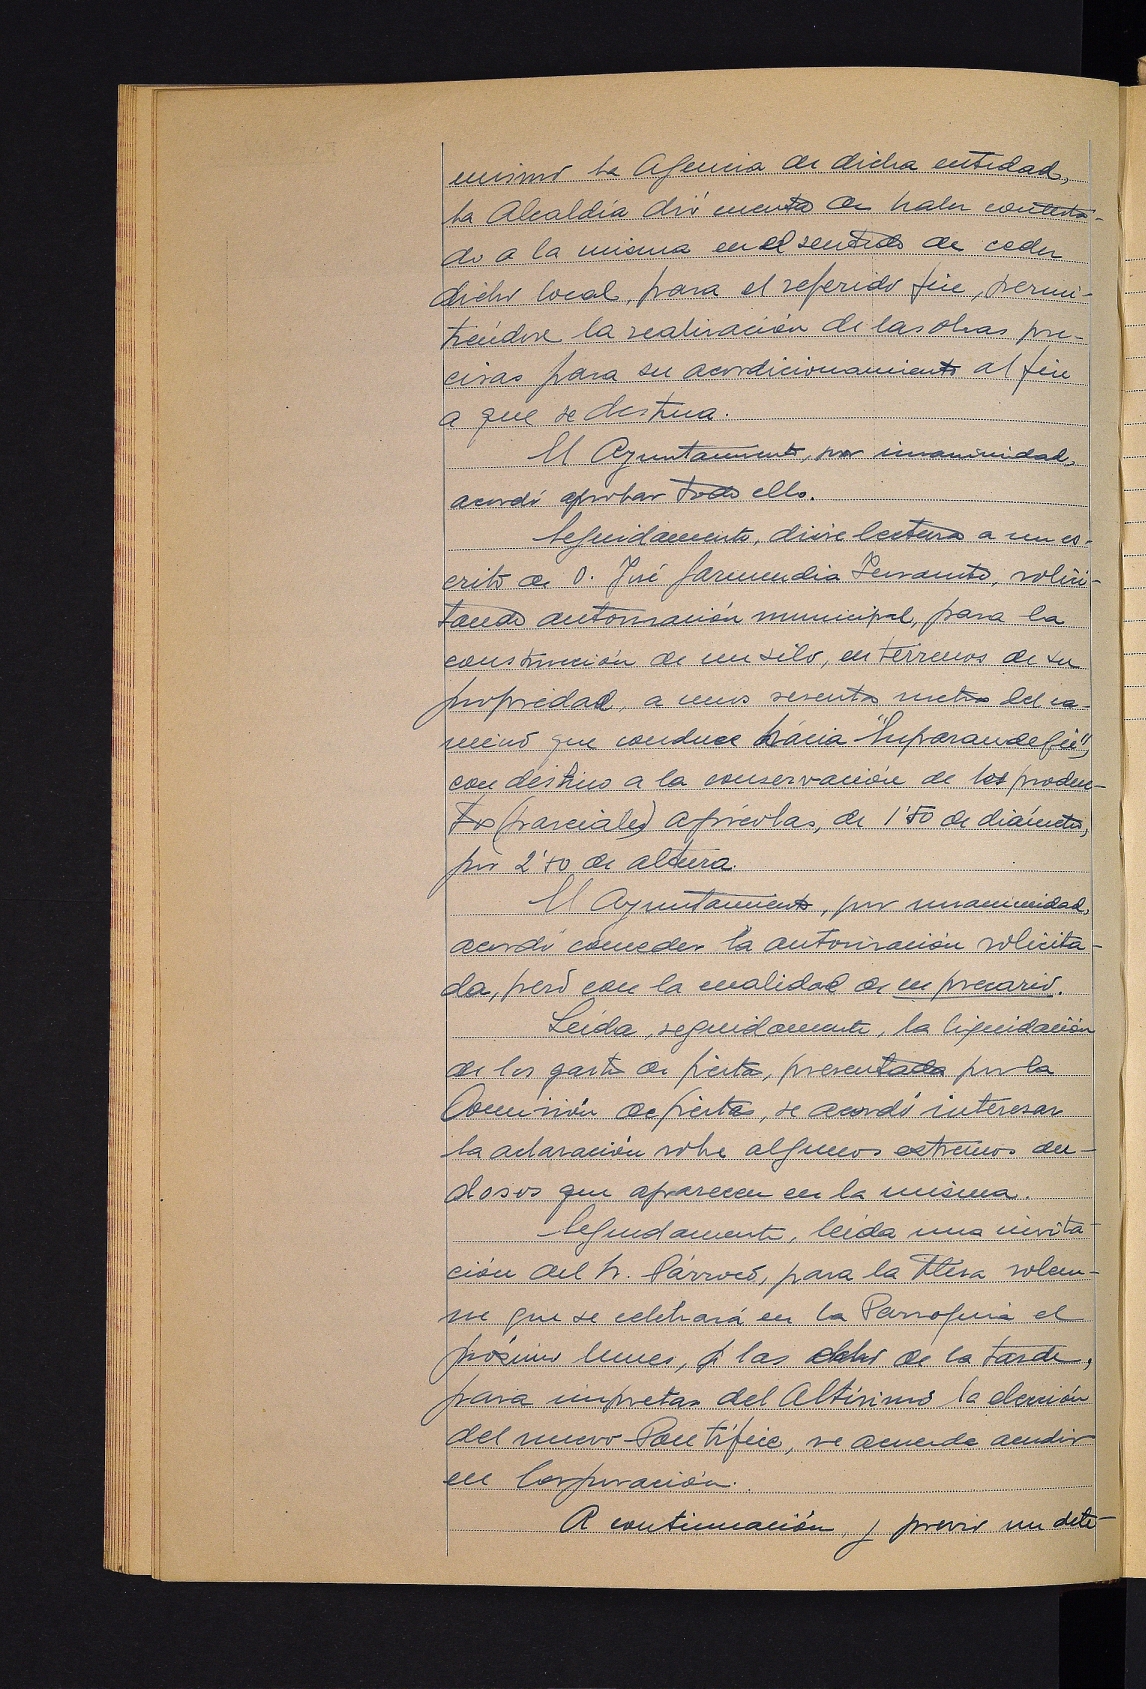 mismo la Agencia de dicha entidad,
la Alcaldía dió cuenta de haber contesta-
do a la misma en el sentido de ceder
dicho local, para el referido fin, permi-
tiéndose la realización de las obras pre-
cisas para su acondicionamiento al fin
a que se destina.
El Ayuntamiento, por unanimidad,
acordó aprobar todo ello.
Seguidamente, dióse lectura a un es-
crito de D. José Garmendia, solici-
tando autorización municipal, para la
construcción de un silo, en terrenos de su
propiedad, a unos sesenta metros del ca-
mino que conduce hácia
con destino a la conservación de los produc-
tos (parciales) agrícolas, de 1'50 de diámetro,
por 2'50 de altura.
El Ayuntamiento, por unanimidad,
acordó conceder la autorización solicita-
da, pero con la cualidad de en precario.
Leída, seguidamente, la liquidación
de los gastos de fiestas, presentada por la
Comisión de fiestas, se acordó interesar
la aclaración sobre algunos extremos du-
dosos que aparecen en la misma.
Seguidamente, leída una invita-
ción del Sr. Párroco, para la Misa solem-
ne que se celebrará en la Parroquia el
próximo lunes, a las ocho de la tarde,
para impretar del Altísimo la elección
del nuevo Pontífice, se acuerda acudir
en Corporación.
A continuación, y previo un dete-